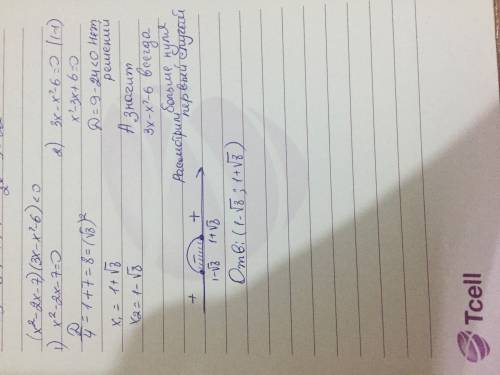 (x²-2x-7)(3x-x²-6)<0
1) x²-2x-7=0
D/4=1+7=8=(√8)²
x₁=1+√8
x₂=1-√8
2) 3x-x²-6=0 |(-1)
x²-3x+6=0
D=9-24<0 Нет
решений
А значит
3x-x²-6 всегда
больше нуля
Рассмотрим первый случай
+ - +
1-√8 1+√8
Отв: (1-√8; 1+√8)
Tcell